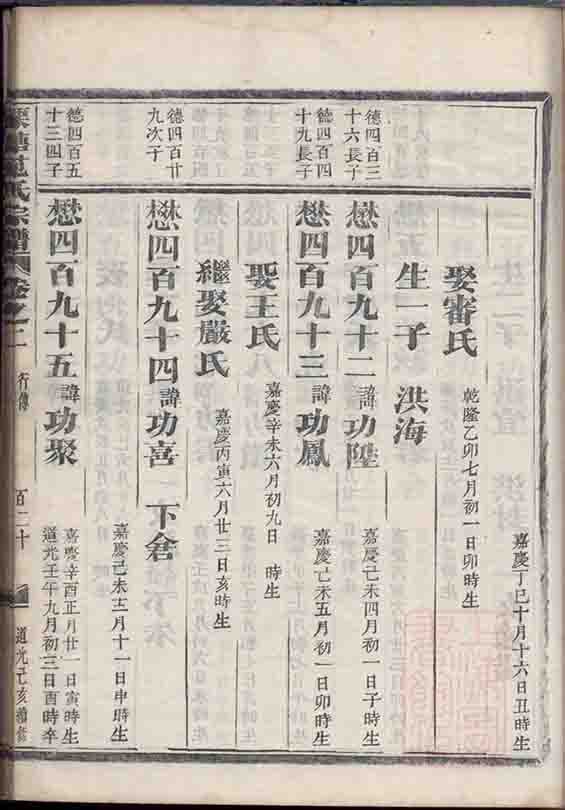 嘉慶丁巳十月十六日丑時生
娶審氏
乾隆乙卯七月初一日卯時生
生一子　洪海
德四百三
十六長子
懋四百九十二
諱功陞
嘉慶己未四月初一日子時生
德四百四
十九長子
懋四百九十三
諱功鳳
嘉慶己未五月初一日卯時生
娶王氏
嘉慶辛未六月初九日　時生
繼娶嚴氏
嘉慶丙寅六月廿三日亥時生
德四百廿
九次子
懋四百九十四
諱功喜　下倉
嘉慶己未十二月十一日申時生
德四百五
十三四子
懋四百九十五
諱功聚
嘉慶辛酉正月廿一日寅時生
道光壬午九月初三日酉時卒
范氏宗譜
卷之二
行傳
百二十
道光己亥續修